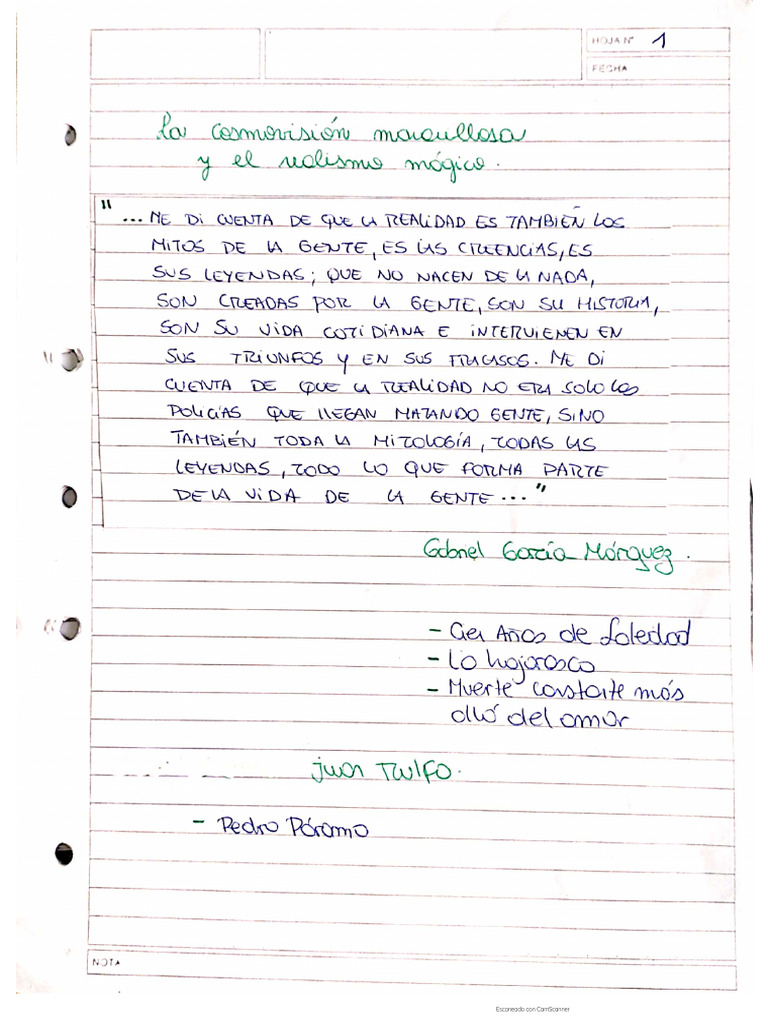 HOJA Nº 1
FECHA
La cosmovisión maravillosa
y el realismo mágico.
"... ME DI CUENTA DE QUE LA REALIDAD ES TAMBIÉN LOS
MITOS DE LA GENTE, ES LAS CREENCIAS, ES
SUS LEYENDAS; QUE NO NACEN DE LA NADA,
SON CREADAS POR LA GENTE, SON SU HISTORIA,
SON SU VIDA COTIDIANA E INTERVIENEN EN
SUS TRIUNFOS Y EN SUS FRACASOS. ME DI
CUENTA DE QUE LA REALIDAD NO ERA SOLO LOS
POLICÍAS QUE LLEGAN MATANDO GENTE, SINO
TAMBIÉN TODA LA MITOLOGÍA, TODAS LAS
LEYENDAS, TODO LO QUE FORMA PARTE
DE LA VIDA DE LA GENTE..."
Gabriel García Márquez.
- Cien Años de Soledad
- La hojarasca
- Muerte constante más
allá del amor
Juan Rulfo.
- Pedro Páramo
NOTA
Escaneado con CamScanner